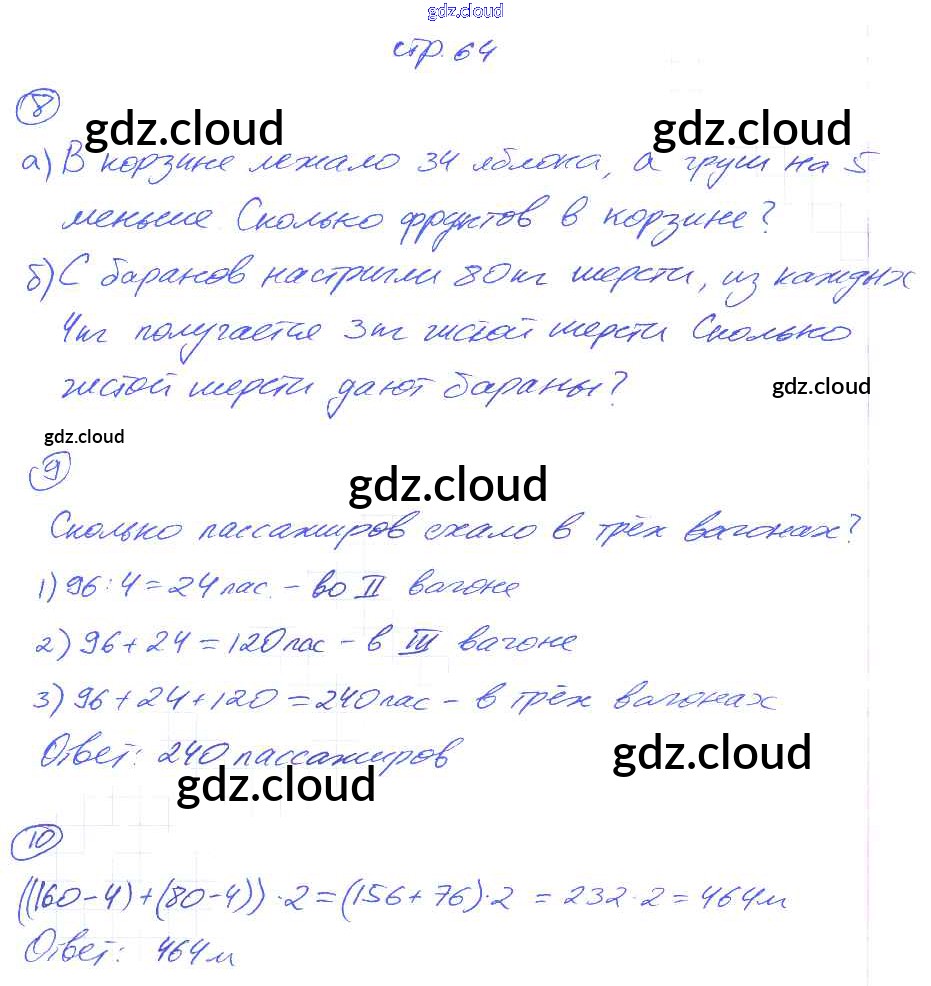 gdz.cloud
стр. 64
8
gdz.cloud gdz.cloud
а) В корзине лежало 34 яблока, а груш на 5
меньше. Сколько фруктов в корзине?
б) С баранов настригли 80 кг шерсти, из каждых
4 кг получается 3 кг чистой шерсти Сколько
чистой шерсти дают бараны?
gdz.cloud
gdz.cloud
9
gdz.cloud
Сколько пассажиров ехало в трёх вагонах?
1) 96 : 4 = 24 пас. – во II вагоне
2) 96 + 24 = 120 пас – в III вагоне
3) 96 + 24 + 120 = 240 пас – в трёх вагонах
Ответ: 240 пассажиров
gdz.cloud
gdz.cloud
10
((160 – 4) + (80 – 4)) · 2 = (156 + 76) · 2 = 232 · 2 = 464 м
Ответ: 464 м